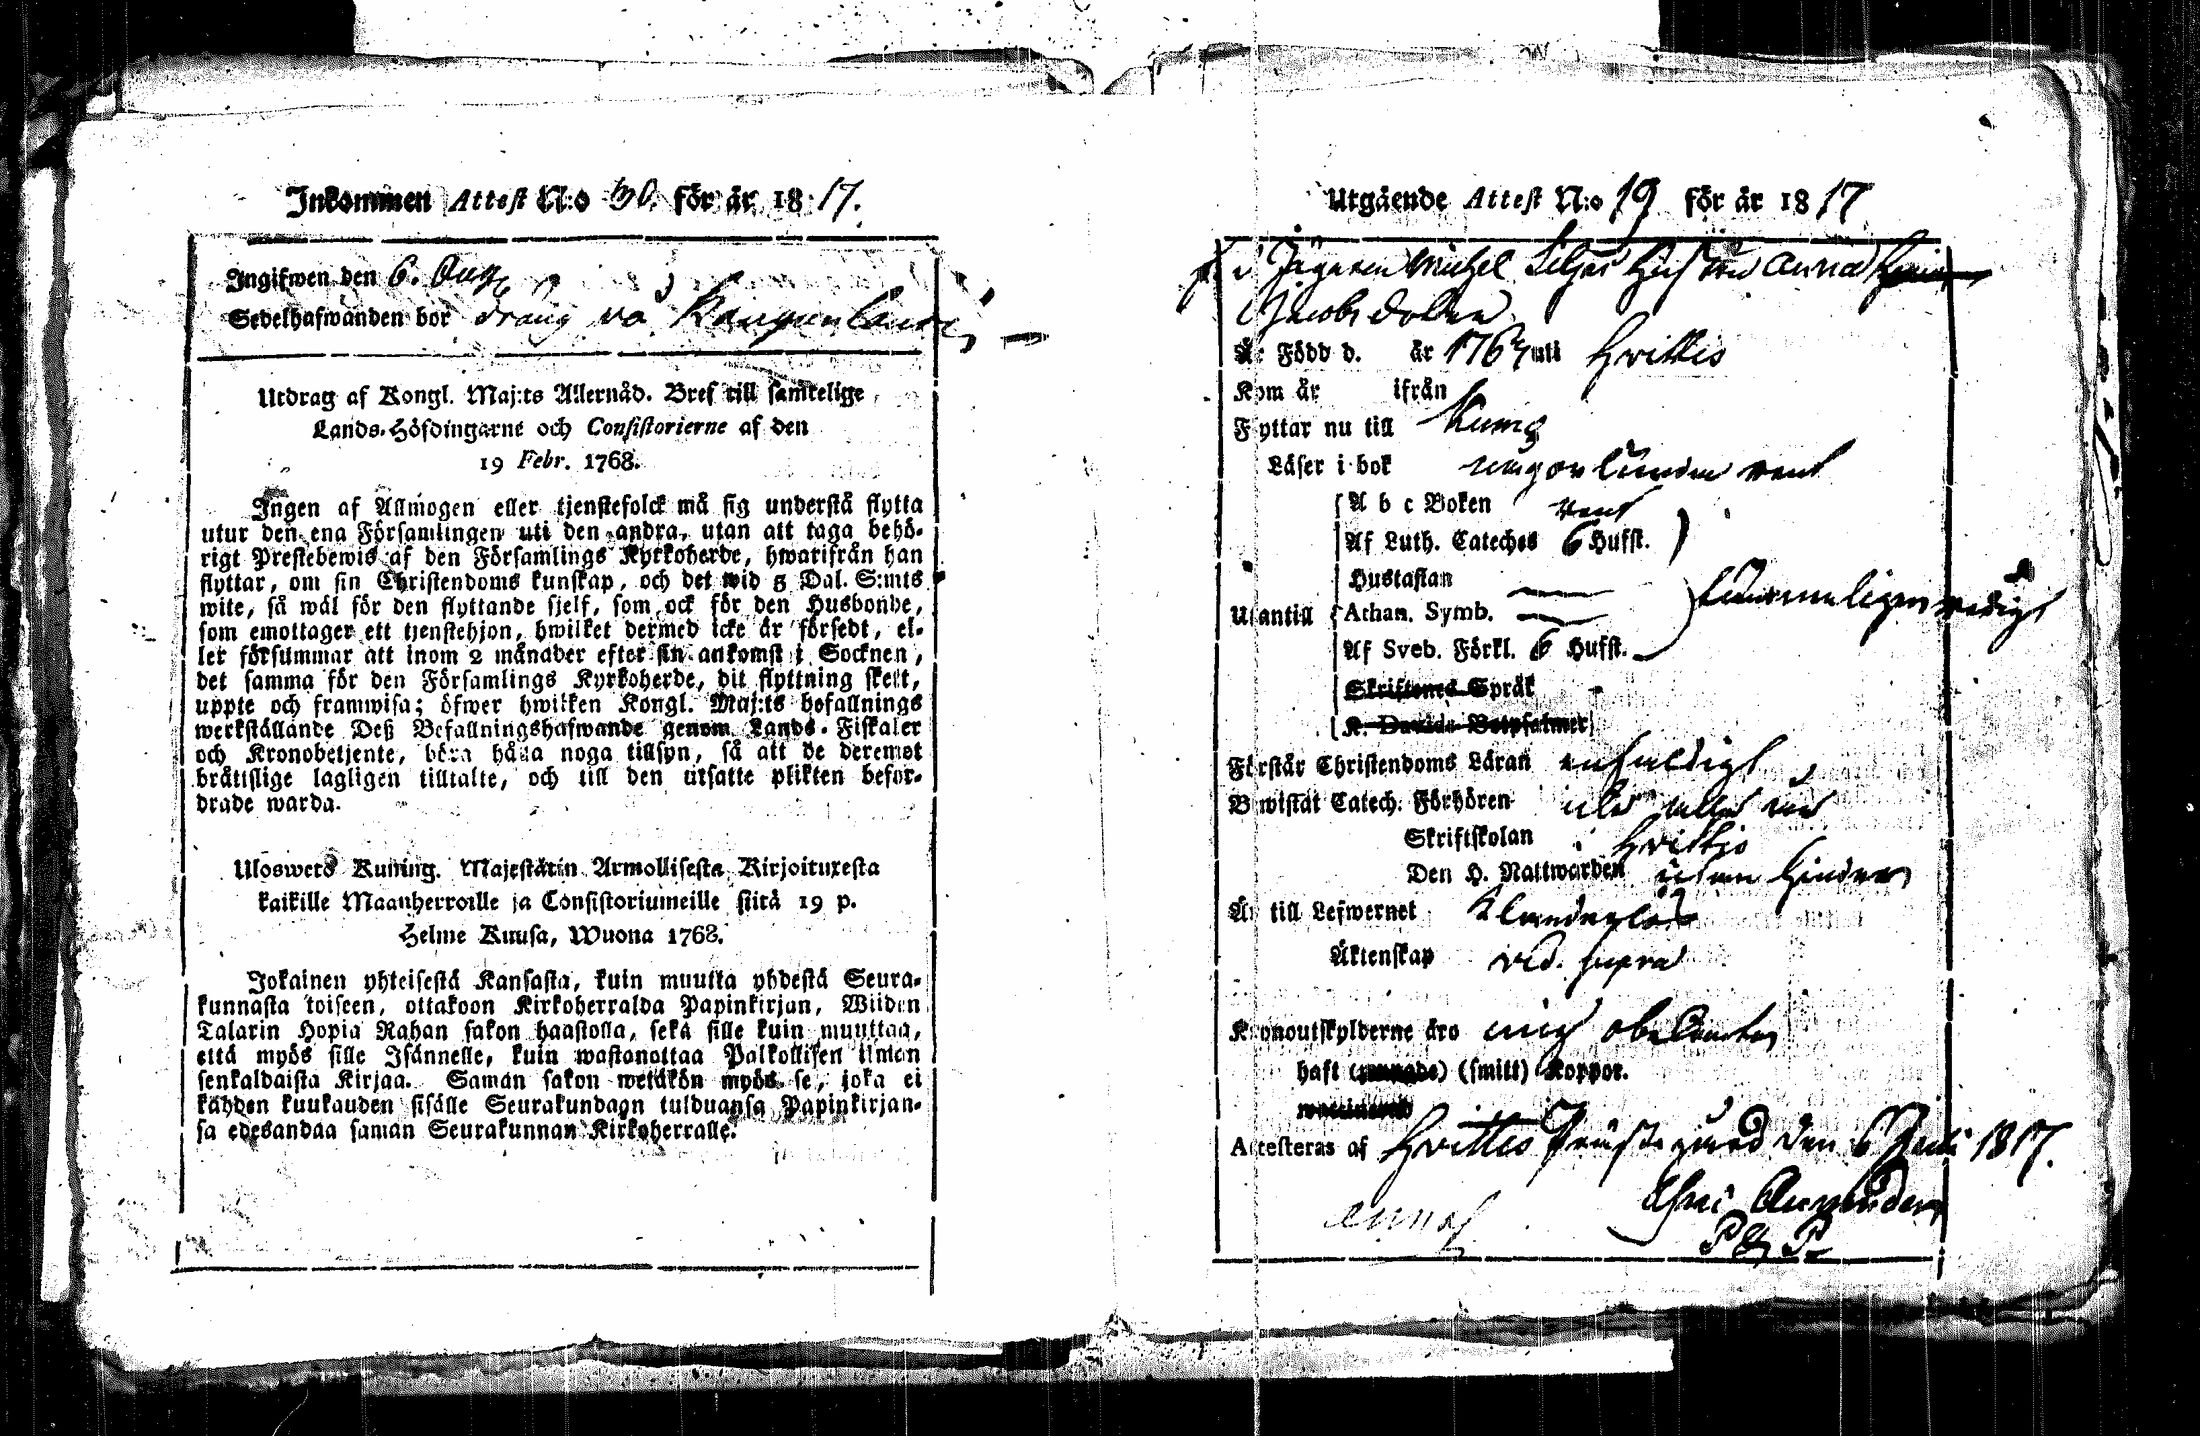 Inkommen Attest N:o 30. för år 1817.
Ingifwen den 6. Aug
Sedelhafwanden bor dräng på
Utdrag af Kongl. Maj:ts Allernåd. Bref till samtelige
Lands-Höfdingarne och Consistorierne af den
19 Febr. 1768.
Ingen af Allmogen eller tjenstefolck må sig understå flytta
utur den ena Församlingen uti den andra, utan att taga behö-
rigt Prestebewis af den Församlings Kyrkoherde, hwarifrån han
flyttar, om sin Christendoms kunskap, och det wid 5 Dal. S:mts
wite, så wäl för den flyttande sjelf, som ock för den Husbonde,
som emottager ett tjenstehjon, hwilket dermed icke är försedt, el-
ler försummar att inom 2 månader efter sin ankomst i Socknen,
det samma för den Församlings Kyrkoherde, dit flyttning skett,
uppte och framwisa; öfwer hwilken Kongl. Maj:ts befallnings
werkställande Deß Befallningshafwande genom Lands-Fiskaler
och Kronobetjente, böra hålla noga tillsyn, så att de deremot
bråttslige lagligen tilltalte, och till den utsatte plikten befor-
drade warda.
Uloswets Kuning. Majestätin Armollisesta Kirjoituxesta
kaikille Maanherroille ja Consistoriumeille siitä 19 p.
Helme Kuusa, Wuona 1768.
Jokainen yhteisestä Kansasta, kuin muutta yhdestä Seura-
kunnasta toiseen, ottakoon Kirkoherralda Papinkirjan, Wiiden
Talarin Hopia Rahan sakon haastolla, sekä sille kuin muuttaa,
että myös sille Isännelle, kuin wastanottaa Palkollisen ilman
senkaldaista Kirjaa. Saman sakon wetäkön myös se, joka ei
kahden kuukauden sisälle Seurakundaan tulduansa Papinkirjan-
sa edesandaa saman Seurakunnan Kirkoherralle.
Utgående Attest N:o 19 för år 1817
Jägaren Michel Seljas Hustru Anna
Jacobsdotter
Är Född d. år 1767 uti Hvittis
Kom år ifrån
Flyttar nu till Kumo
Läser i bok någorlunda rent
A b c Boken rent
Af Luth. Cateches 6 Hufst.
Hustaflan
Utantill Athan. Symb.
Af Sveb. Förkl. 6 Hufst.
Skriftenes Språk
K. Davids Botpsalmer
Förstår Christendoms Läran enfaldigt
Bewistat Catech. Förhören
Skriftskolan i Hvittis
Den H. Nattwarden utan hinder
Är till Lefwernet klanderlös
Äktenskap vid. supra
Kronoutskylderne äro mig obekanta
haft (smitt) Koppor.
Attesteras af Hvittis Prästegård den 6 Juli 1817.